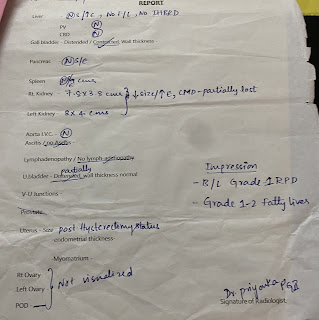 REPORT
Liver : (N) S/↑E , No F/L , No IHBRD
PV (N)
CBD (N)
Gall bladder - Distended / Contracted, Wall thickness
Pancreas (N) S/E
Spleen cms
Rt Kidney - 7.8 x 3.8 cms
↓ size/↑E, CMD - partially lost
Left Kidney 8 x 4. cms
Aorta I.V.C. (N)
Ascitis / no Ascitis
Lymphadenopathy / No lymph-adenopathy
partially
U.bladder - Distended, wall thickness normal
V-U Junctions -
Prostate
Uterus - Size post Hysterectomy status
-endometrial thickness-
-Myomatrium -
Rt Ovary
Left Ovary
Not visualized
POD
Impression
- B/L Grade 1 RPD
- Grade 1-2 Fatty liver
Dr. Priyanka PG
Signature of Radiologist